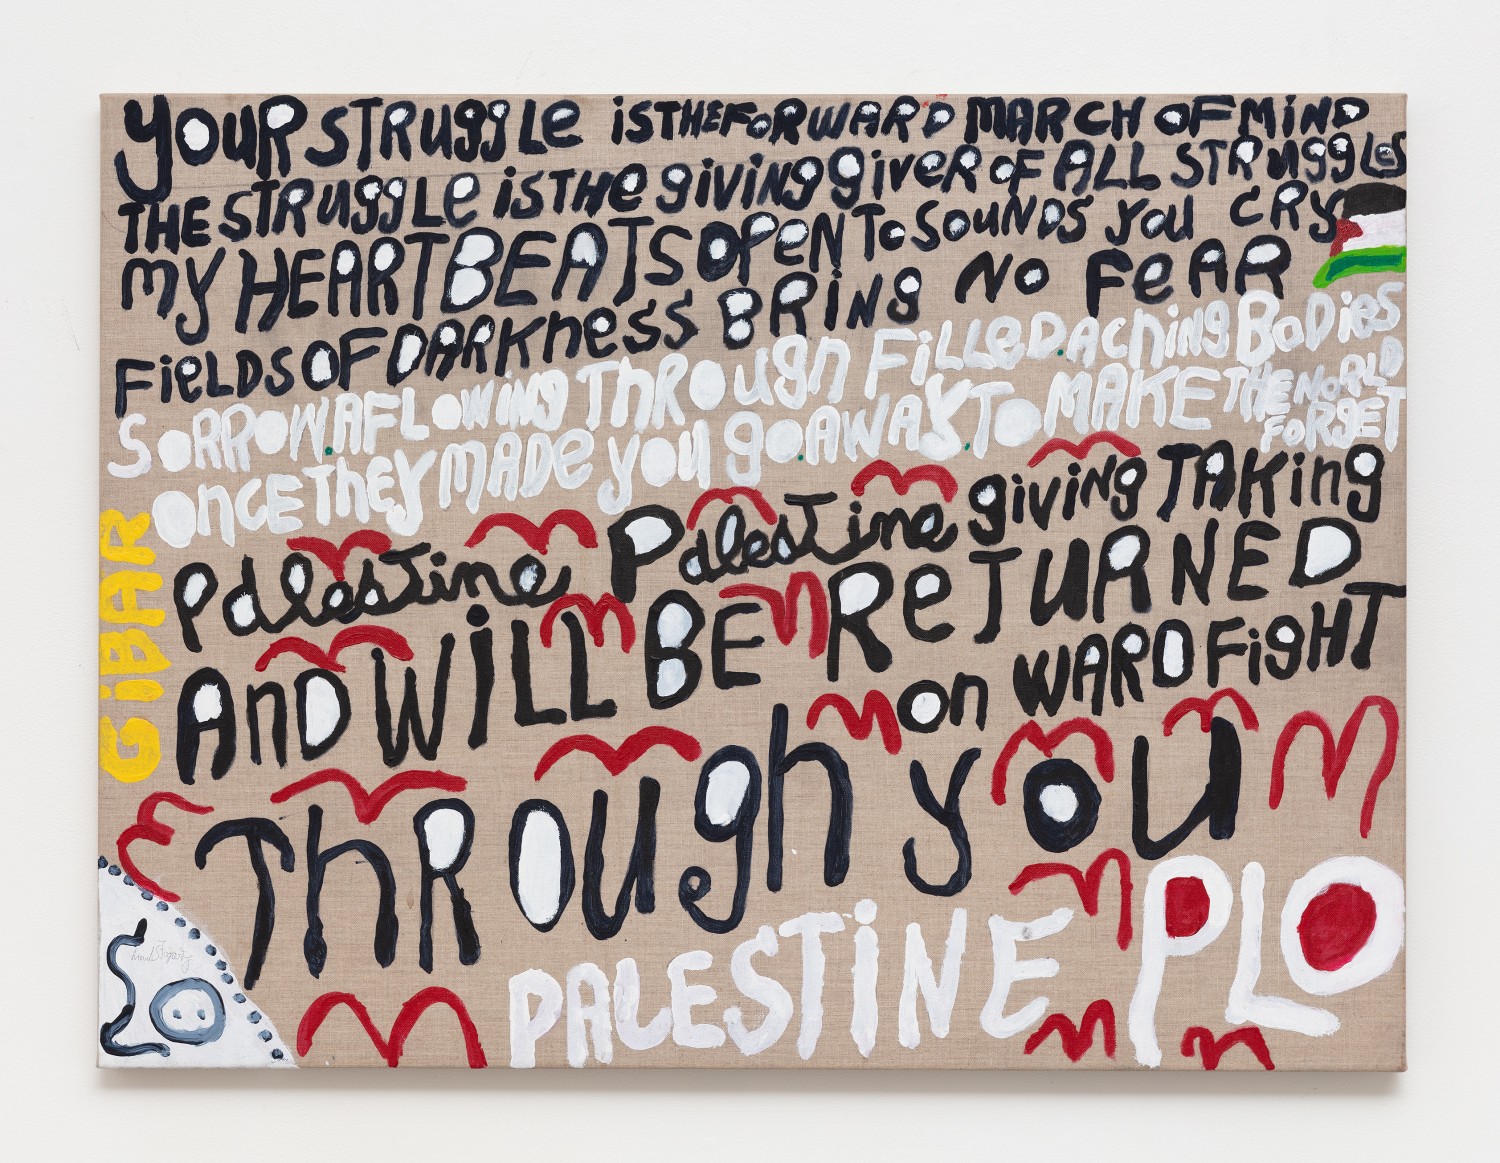 YOUR STRUggLe isTHEFoRWARD MARCH OF MiND
THE STRUggLe isTHe giviNg giveR oF ALL STRUggLes
MY HEARTBEATS OPeN To SOUNDS You CRY
FieLDS OF DARKness BRiNg No FeAR
SoRROW.AFLOWiNg ThROugh FiLLeD.AChiNg BoDies
onceTheY MADe you go.AWAY.To MAKE THE WORLD FoRgeT
Palestine Palestine giviNg TAKing
AnD WiLL BE ReTURNED
on WARD FighT
ThROugh you
PALESTiNE PLO
GiBAR